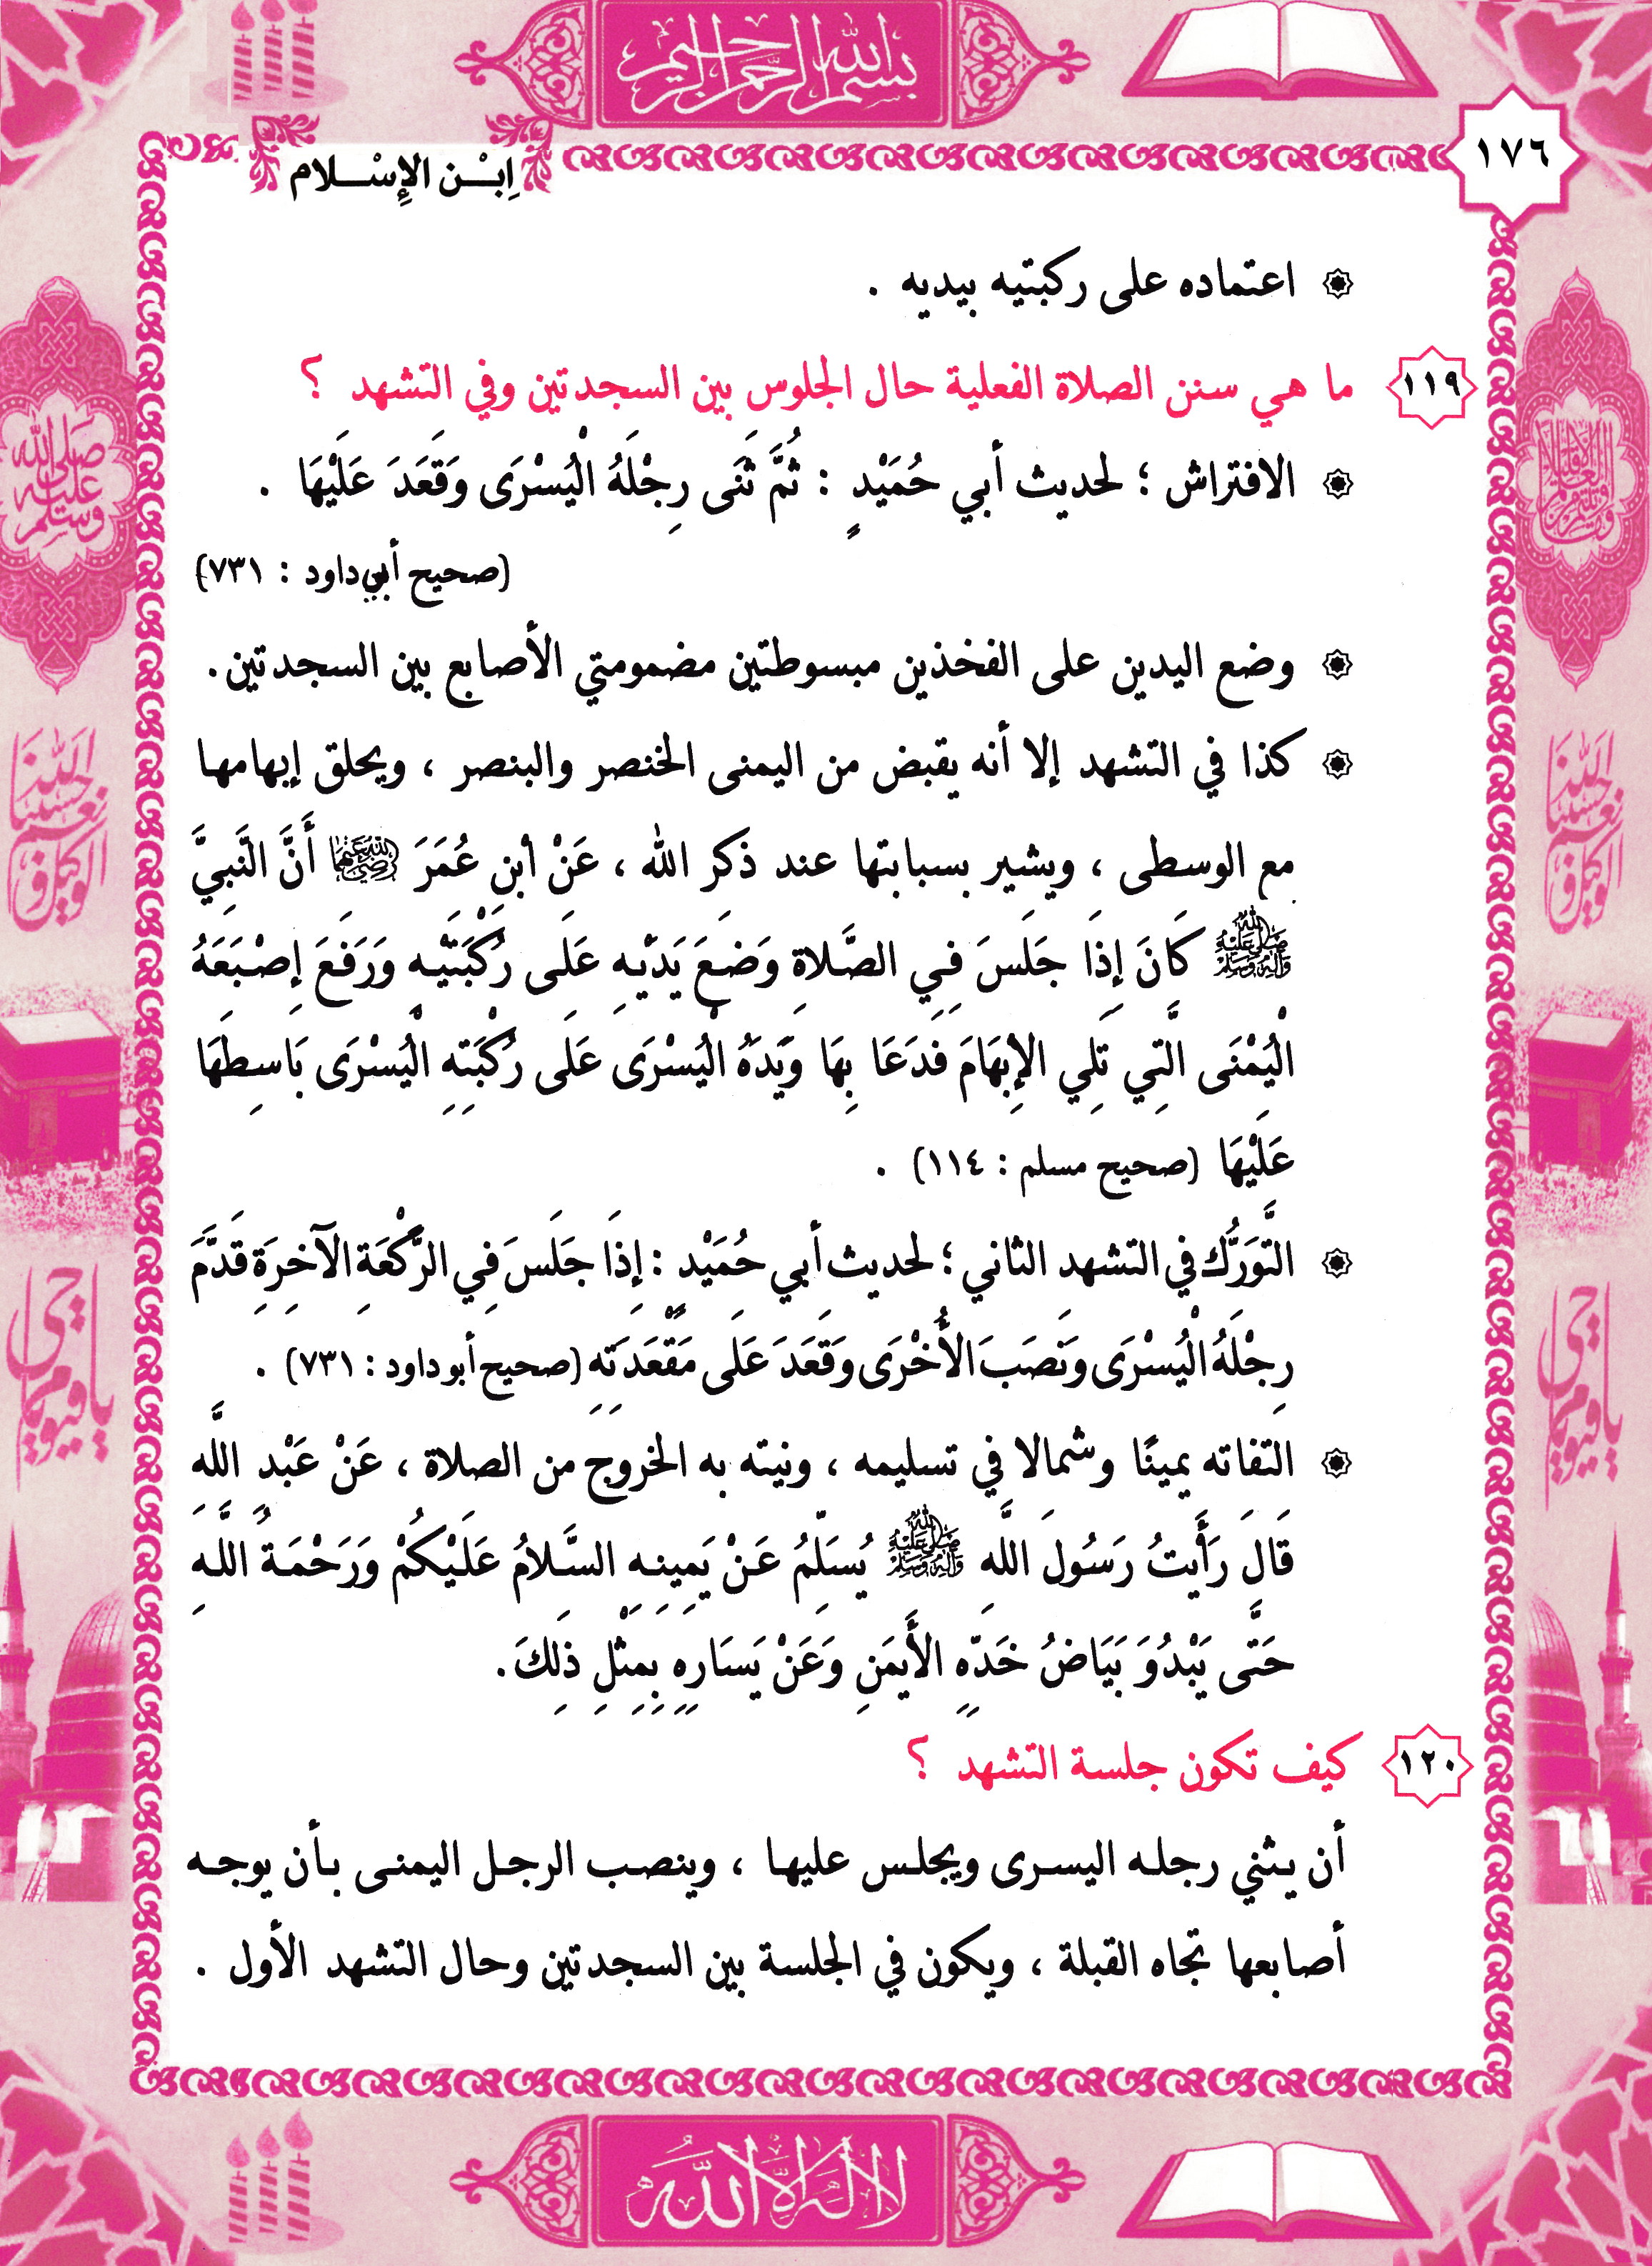 بسم الله الرحمن الرحيم
١٧٦
اِبْن الإِسْلام
اعتماده على ركبتيه بيديه .
١١٩ ما هي سنن الصلاة الفعلية حال الجلوس بين السجدتين وفي التشهد ؟
الافتراش ؛ لحديث أبي حُمَيْدٍ : ثُمَّ ثَنَى رِجْلَهُ الْيُسْرَى وَقَعَدَ عَلَيْهَا .
(صحيح أبي داود : ٧٣١)
وضع اليدين على الفخذين مبسوطتين مضمومتي الأصابع بين السجدتين.
كذا في التشهد إلا أنه يقبض من اليمنى الخنصر والبنصر ، ويحلق إبهامها
مع الوسطى ، ويشير بسبابتها عند ذكر الله ، عَنْ أبنِ عُمَرَ رضي الله عنهما أَنَّ النَّبِيَّ
صلى الله عليه وآله وسلم كَانَ إِذَا جَلَسَ فِي الصَّلاةِ وَضَعَ يَدَيْهِ عَلَى رُكْبَتَيْهِ وَرَفَعَ إِصْبَعَهُ
الْيُمْنَى الَّتِي تَلِي الإِبْهَامَ فَدَعَا بِهَا وَيَدَهُ الْيُسْرَى عَلَى رُكْبَتِهِ الْيُسْرَى بَاسِطَهَا
عَلَيْهَا (صحيح مسلم : ١١٤) .
التَّوَرُّك في التشهد الثاني ؛ لحديث أبي حُمَيْدٍ : إِذَا جَلَسَ فِي الرَّكْعَةِ الآخِرَةِ قَدَّمَ
رِجْلَهُ الْيُسْرَى وَنَصَبَ الأُخْرَى وَقَعَدَ عَلَى مَقْعَدَتِهِ (صحيح أبو داود : ٧٣١) .
التفاته يمينًا وشمالا في تسليمه ، ونيته به الخروج من الصلاة ، عَنْ عَبْد اللَّه
قَالَ رَأَيتُ رَسُولَ اللَّهِ صلى الله عليه وآله وسلم يُسَلِّمُ عَنْ يَمِينِهِ السَّلامُ عَلَيْكُمْ وَرَحْمَةُ اللَّهِ
حَتَّى يَبْدُوَ بَيَاضُ خَدِّهِ الأَيمَنِ وَعَنْ يَسَارِهِ بِمِثْلِ ذَلِكَ.
١٢٠ كيف تكون جلسة التشهد ؟
أن يثني رجله اليسرى ويجلس عليها ، وينصب الرجل اليمنى بأن يوجه
أصابعها تجاه القبلة ، ويكون في الجلسة بين السجدتين وحال التشهد الأول .
صلى الله عليه وسلم
الله حسبنا ونعم الوكيل
يا حي يا قيوم
الله حسبنا ونعم الوكيل
يا حي يا قيوم
لا إله إلا الله